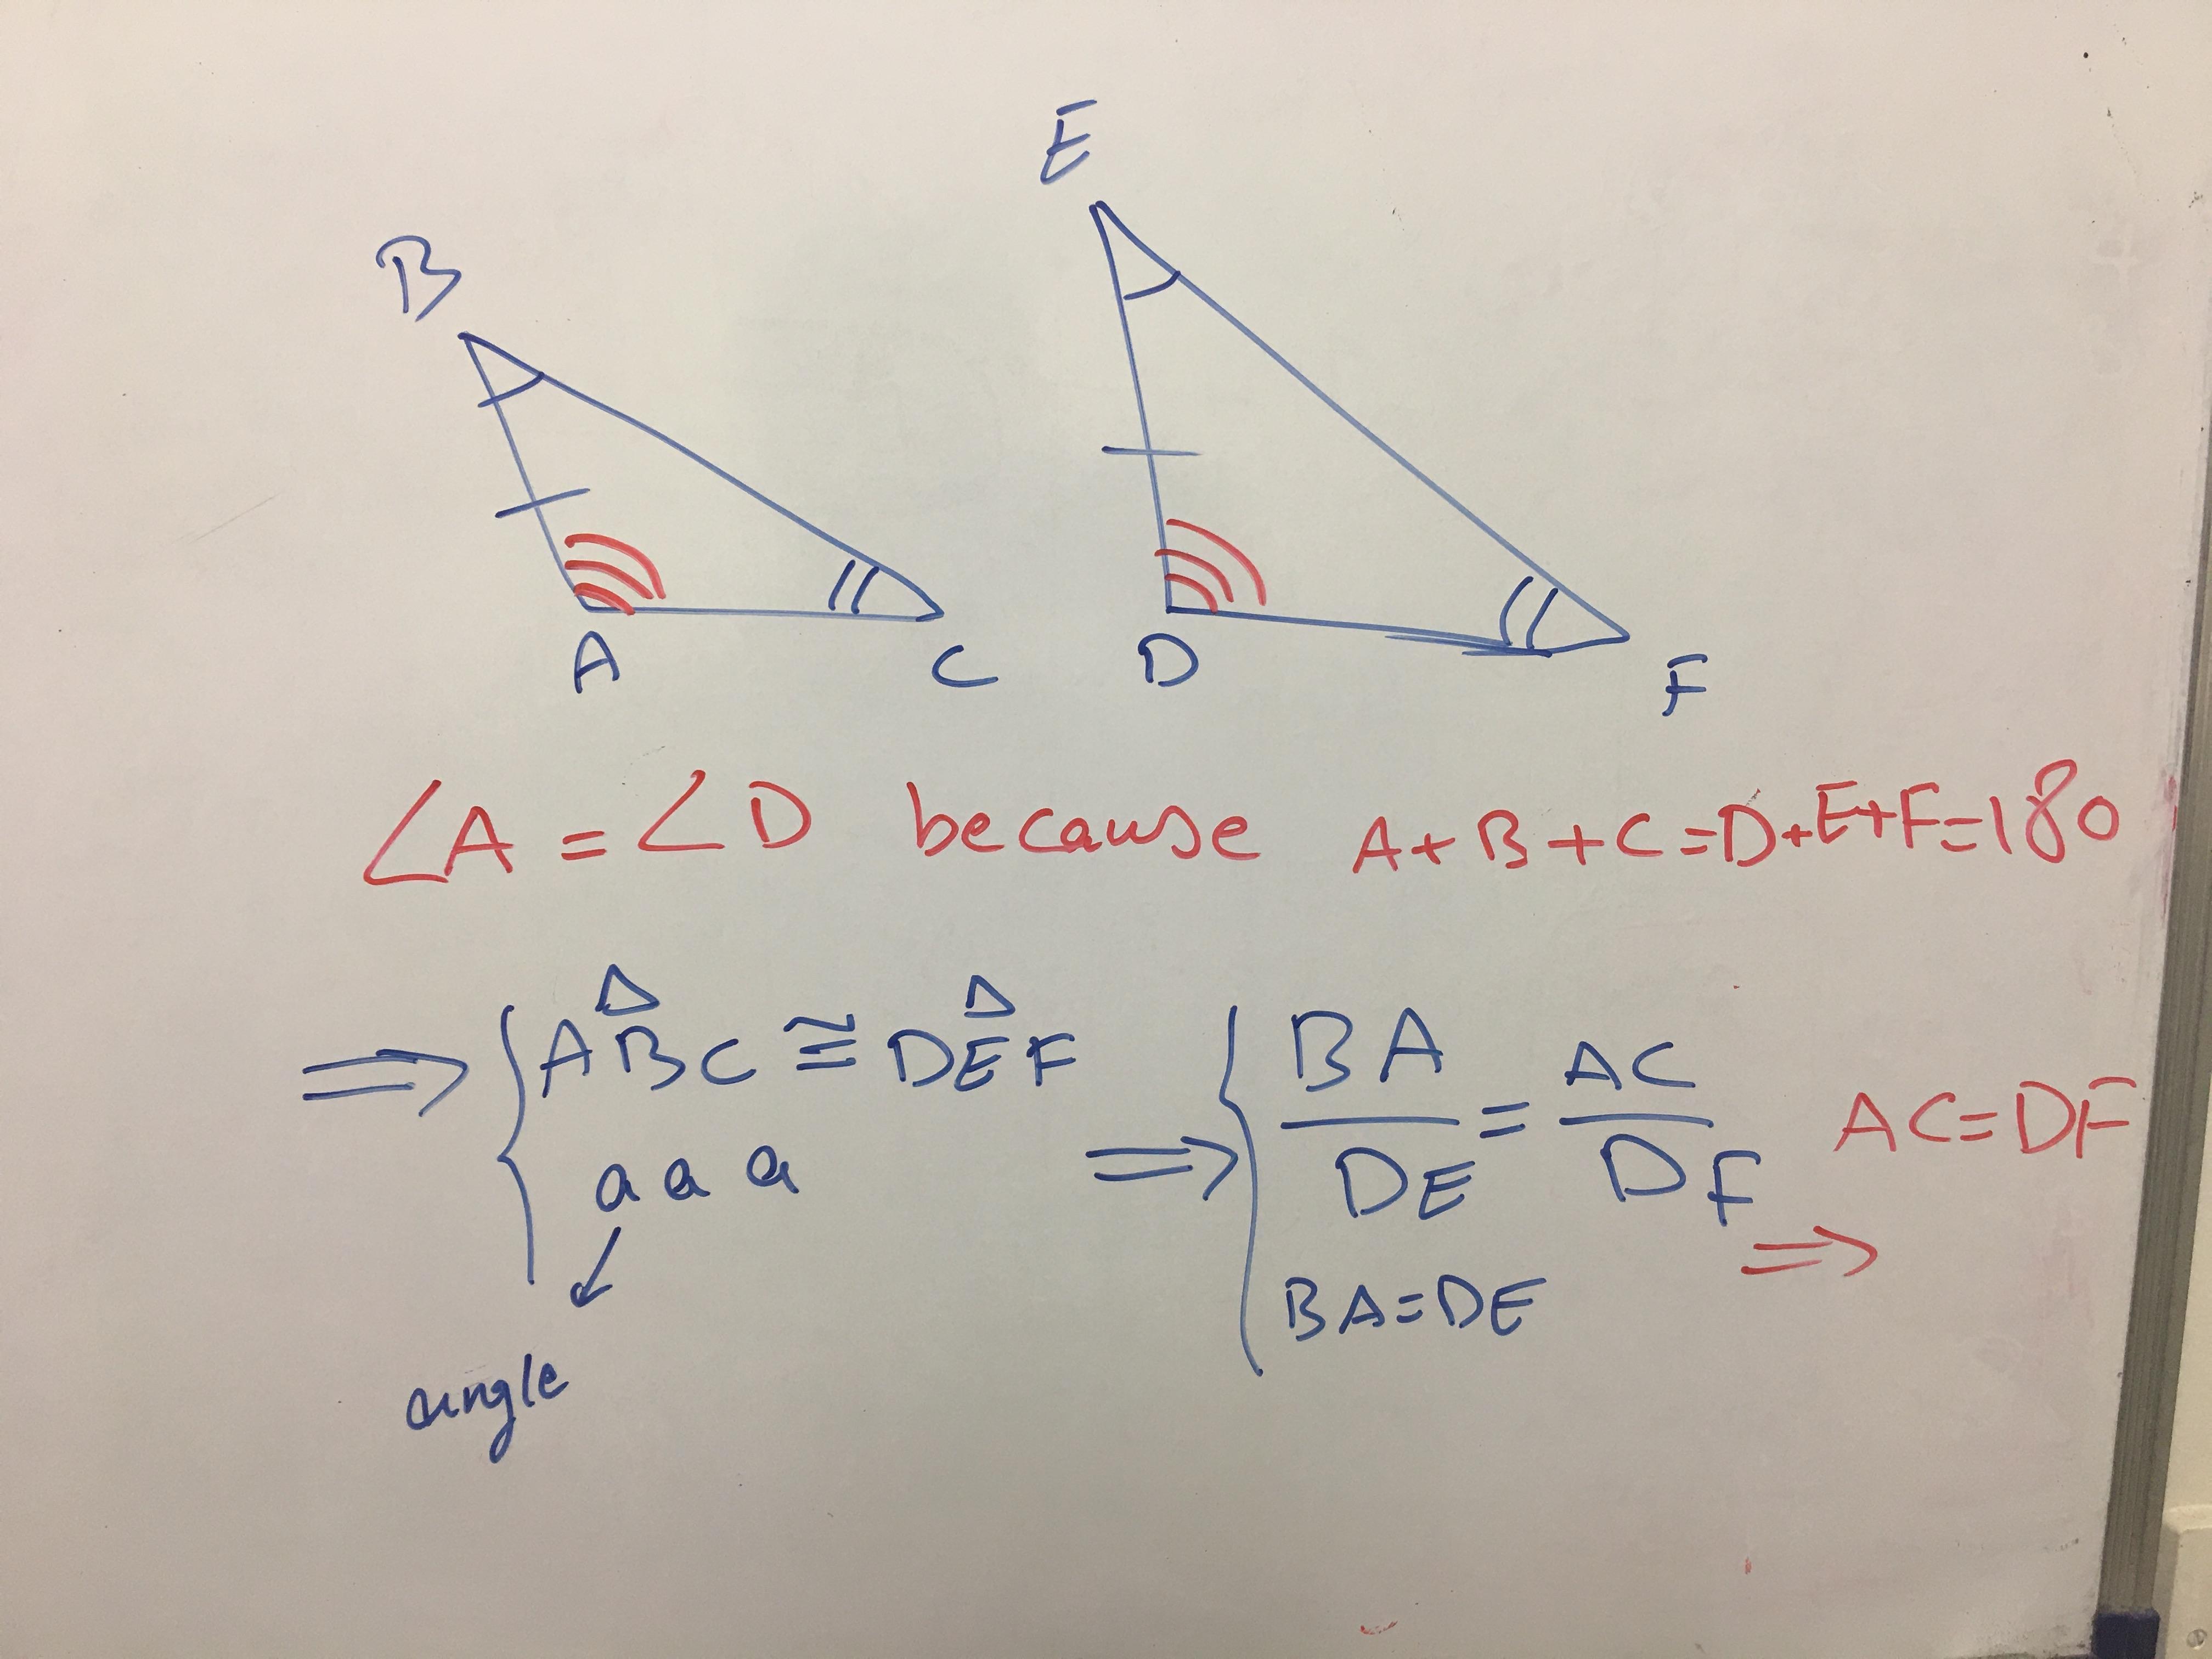 E
B
A C D F
∠A = ∠D because A+B+C=D+E+F=180
⇒ { ABC ≅ DEF
a a a
angle
⇒ { BA/DE = AC/DF
BA=DE
⇒ AC=DF